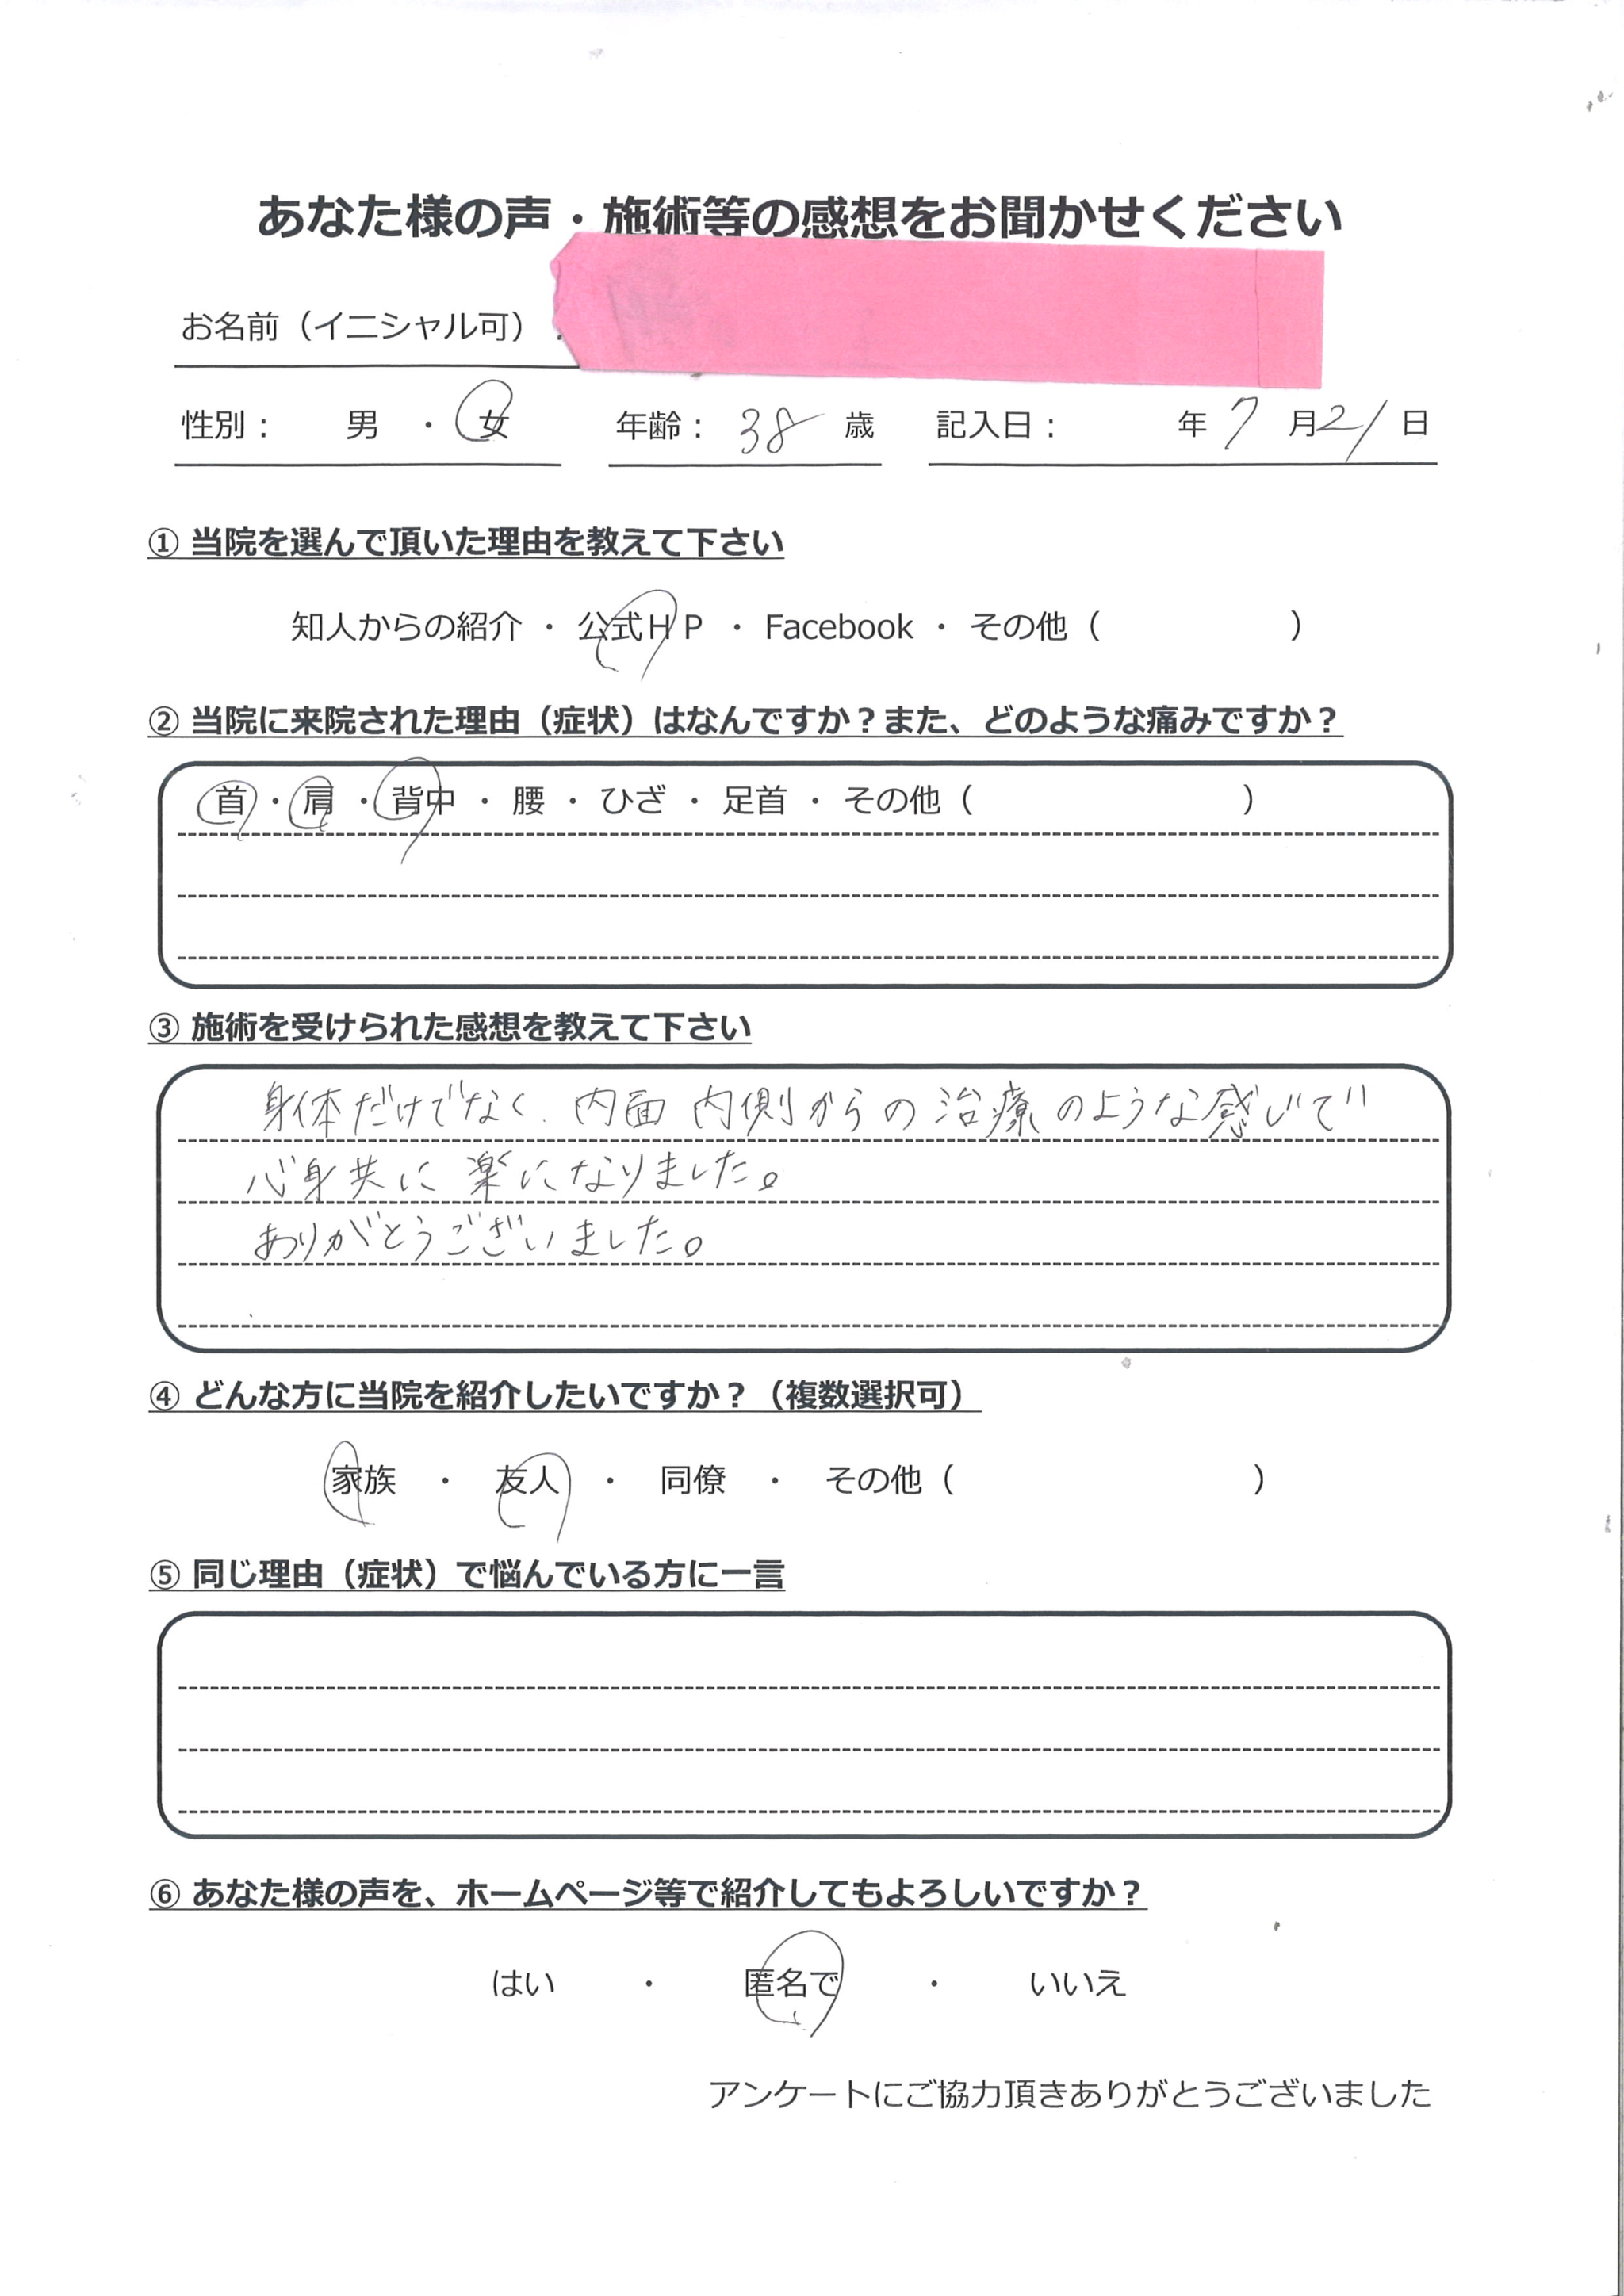 あなた様の声・施術等の感想をお聞かせください
お名前（イニシャル可）：
性別： 男 ・ 女 年齢： 38 歳 記入日： 年 7 月 21 日
① 当院を選んで頂いた理由を教えて下さい
知人からの紹介 ・ 公式ＨＰ ・ Facebook ・ その他（ ）
② 当院に来院された理由（症状）はなんですか？また、どのような痛みですか？
首 ・ 肩 ・ 背中 ・ 腰 ・ ひざ ・ 足首 ・ その他（ ）
③ 施術を受けられた感想を教えて下さい
身体だけでなく、内面 内側からの治療のような感じで
心身共に楽になりました。
ありがとうございました。
④ どんな方に当院を紹介したいですか？（複数選択可）
家族 ・ 友人 ・ 同僚 ・ その他（ ）
⑤ 同じ理由（症状）で悩んでいる方に一言
⑥ あなた様の声を、ホームページ等で紹介してもよろしいですか？
はい ・ 匿名で ・ いいえ
アンケートにご協力頂きありがとうございました